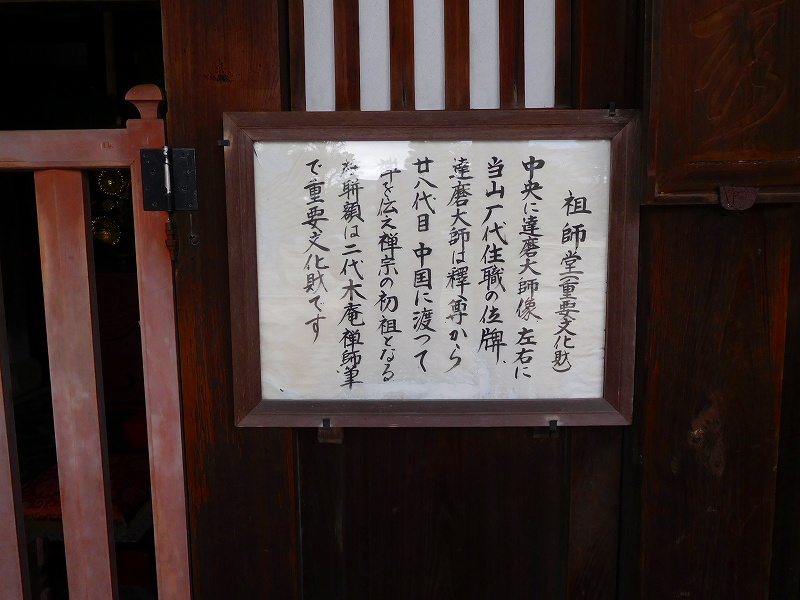 祖師堂(重要文化財)
中央に達磨大師像 左右に
当山厂代住職の位牌、
達磨大師は釋尊から
廿八代目 中国に渡って
禅を伝え禅宗の初祖となる
聯額は二代木庵禅師筆
で重要文化財です